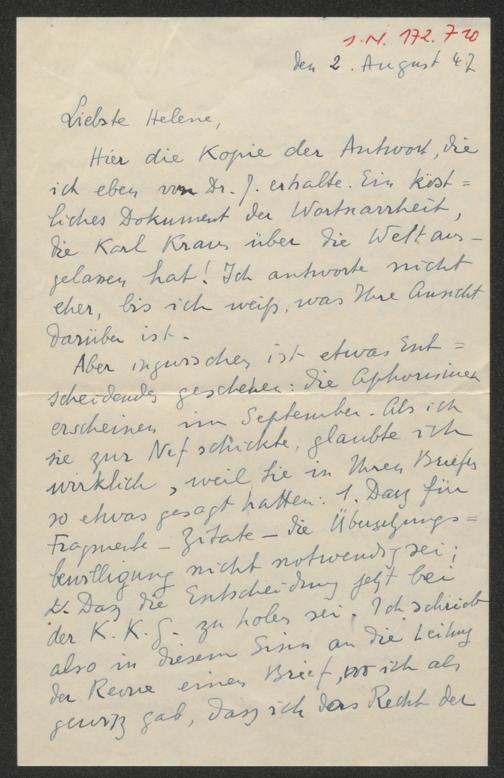 J.N. 172.710
den 2. August 47
Liebste Helene,
Hier die Kopie der Antwort, die
ich eben von Dr. J. erhalte. Ein köst=
liches Dokument der Wortnarrheit,
die Karl Kraus über die Welt aus-
gelassen hat! Ich antworte nicht
eher, bis ich weiß, was Ihre Ansicht
darüber ist.
Aber inzwischen ist etwas Ent=
scheidendes geschehen: die Aphorismen
erscheinen im September. Als ich
sie zur Nef schickte, glaubte ich
wirklich, weil Sie in Ihren Briefen
so etwas gesagt hatten: 1. Dasz für
Fragmente – Zitate – die Übersetzungs=
bewilligung nicht notwendig sei;
2. Dasz die Entscheidung jetzt bei
der K. K. G. zu holen sei. Ich schrieb
also in diesem Sinn an die Leitung
der Revue einen Brief, wo ich als
gewisz gab, dasz ich das Recht der